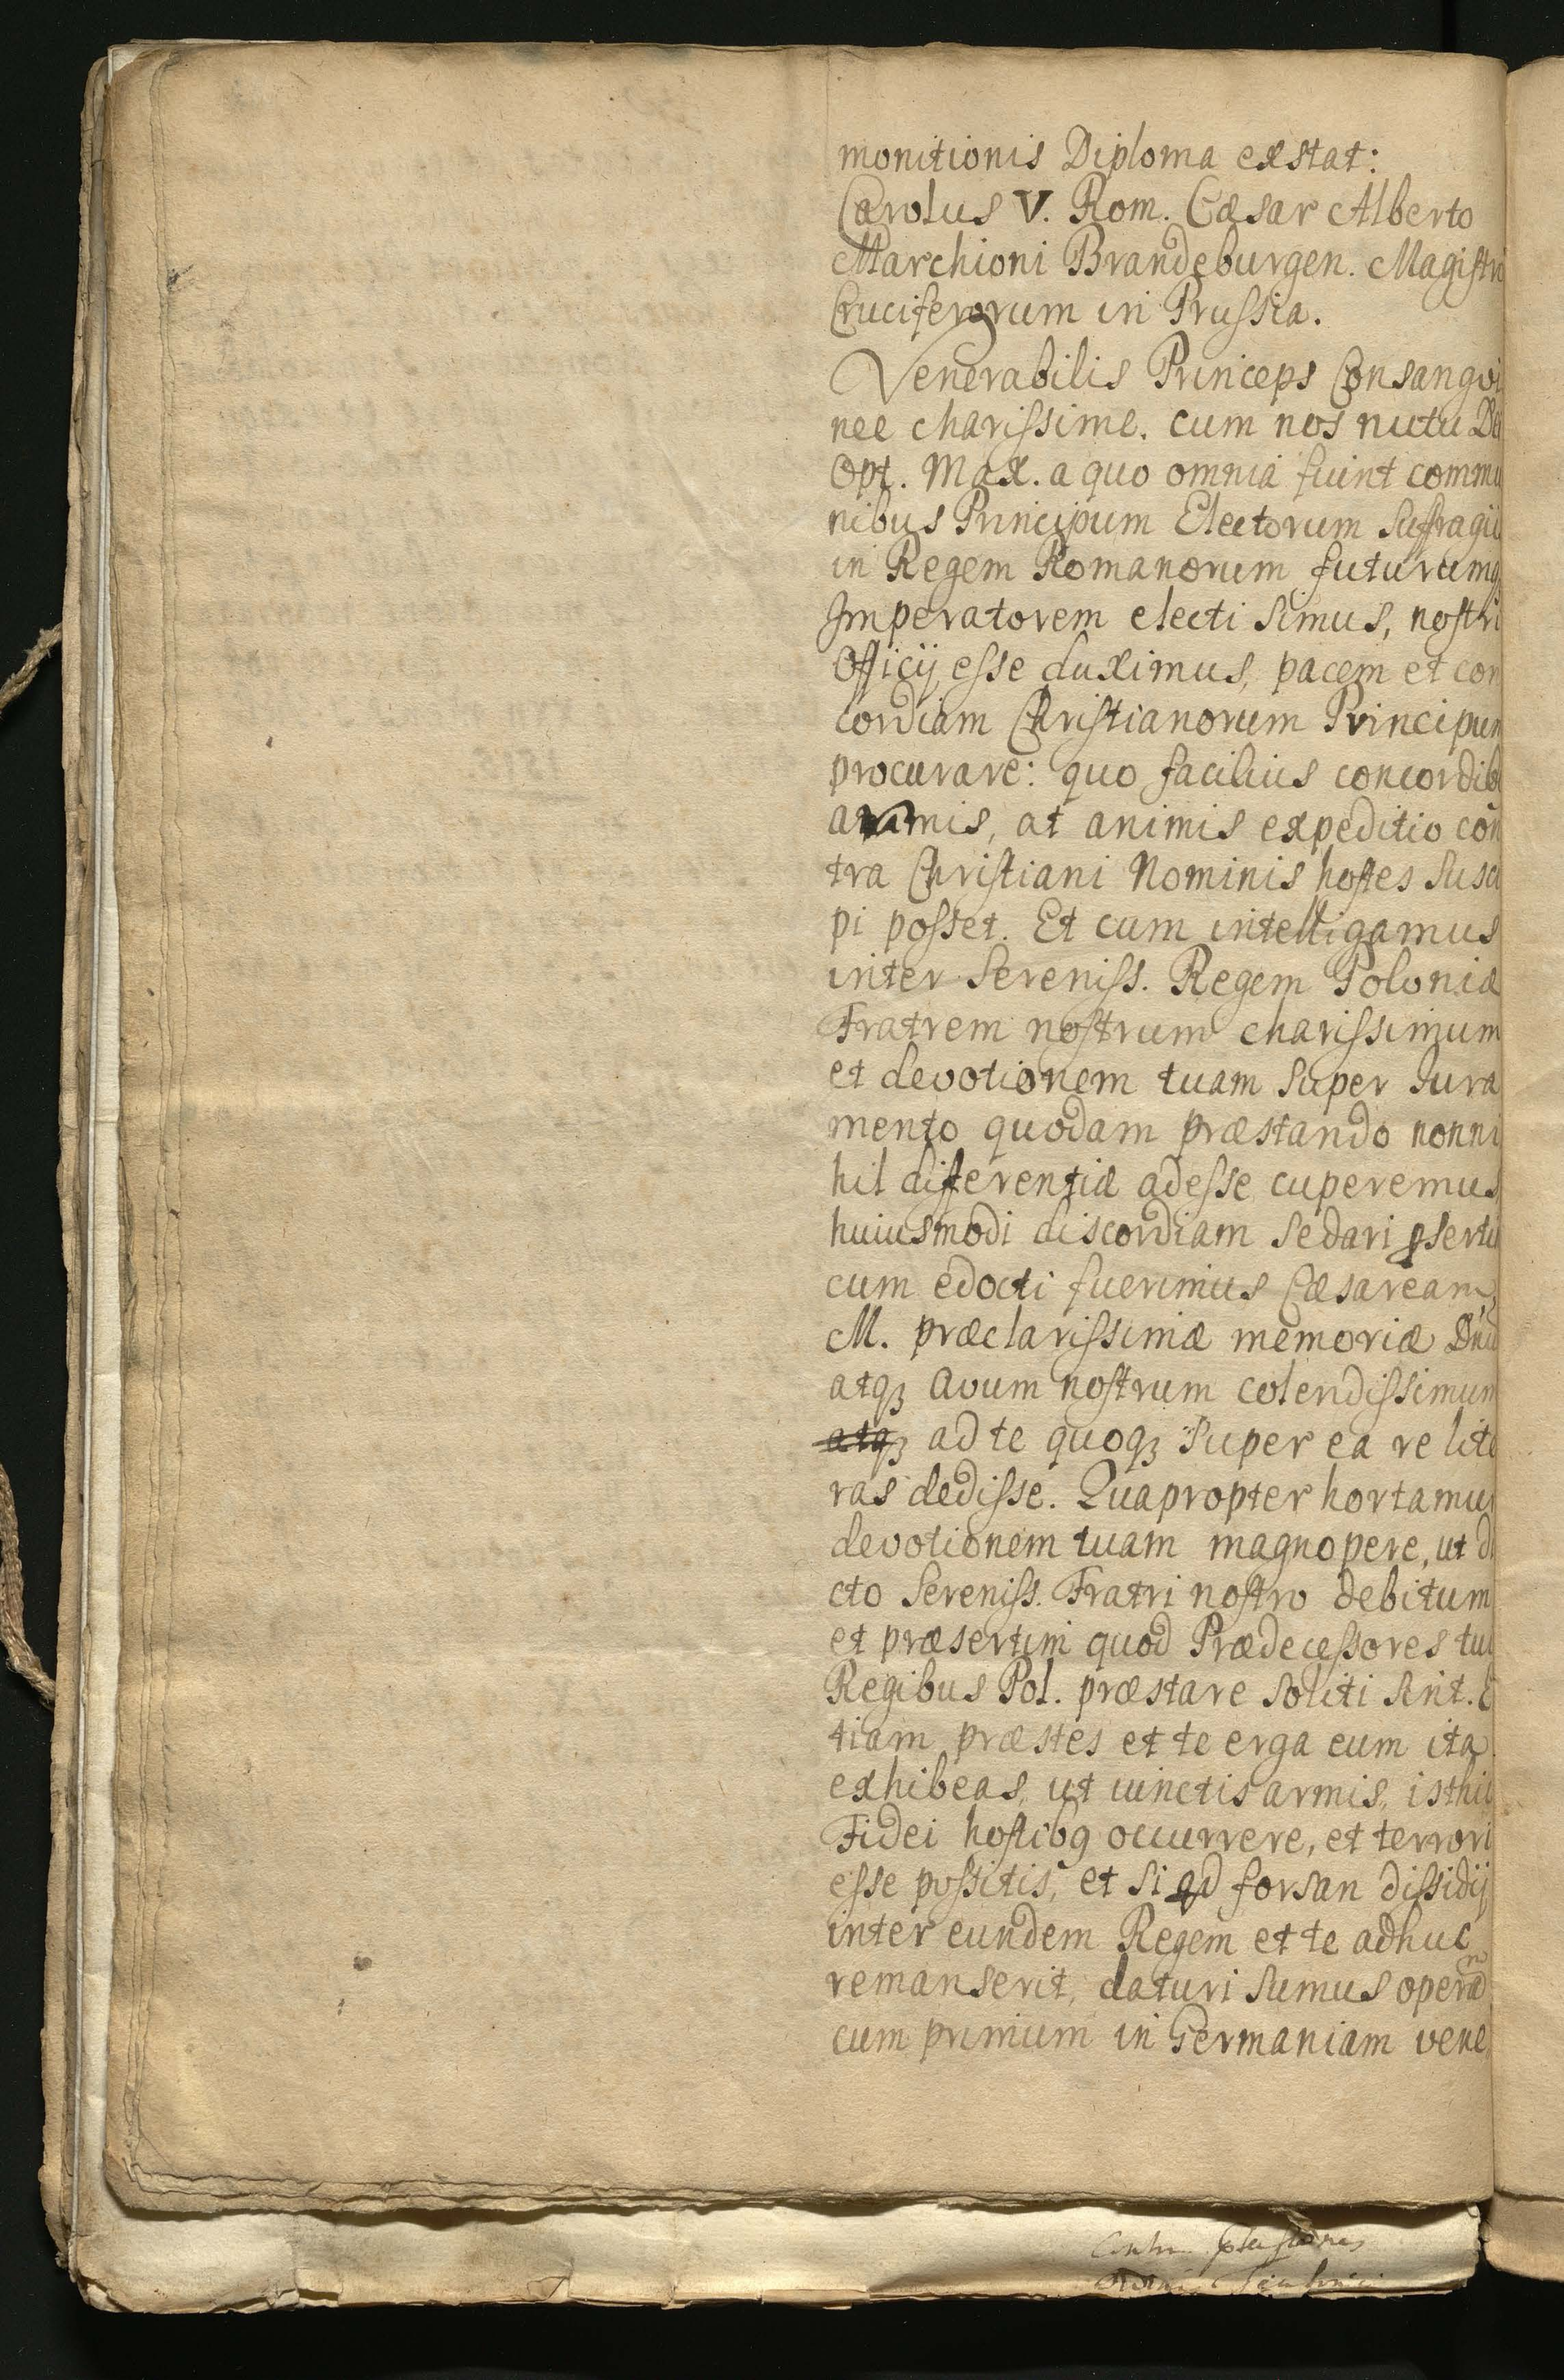 monitionis Diploma exstat:
Carolus V. Rom. Cæsar Alberto
Marchioni Brandeburgen. Magistro
Cruciferorum in Prussia.
Venerabilis Princeps Consangvi
nee charissime. cum nos nutu Dei
Opt. Max. a quo omnia fiunt commu
nibus Principum Electorum Suffragii
in Regem Romanorum futurumq
Imperatorem electi simus, nostri
Officij esse duximus, pacem et con
cordiam Christianorum Principum
procurare: quo facilius concordib
armis, at animis expeditio con
tra Christiani Nominis hostes susci
pi posset. Et cum intelligamus
inter Sereniss. Regem Poloniæ
Fratrem nostrum charissimum
et devotionem tuam super Iura
mento quodam præstando nonni
hil differentiæ adesse cuperemus
huiusmodi discordiam sedari pserti
cum edocti fuerimus Cæsaream
M. præclarissimæ memoriæ Dnu
atq3 Avum nostrum colendissimum
atq3 ad te quoq3 super ea re lite
ras dedisse. Quapropter hortamur
devotionem tuam magnopere, ut di
cto Sereniss. Fratri nostro debitum
et præsertim quod Prædecessores tui
Regibus Pol. præstare soliti sint. E
tiam præstes et te erga eum ita
exhibeas, ut iunctis armis, isthic
Fidei hostibq occurrere, et terrori
esse possitis, et si qd forsan dissidij
inter eundem Regem et te adhuc
remanserit, daturi sumus operam
cum primum in Germaniam vene